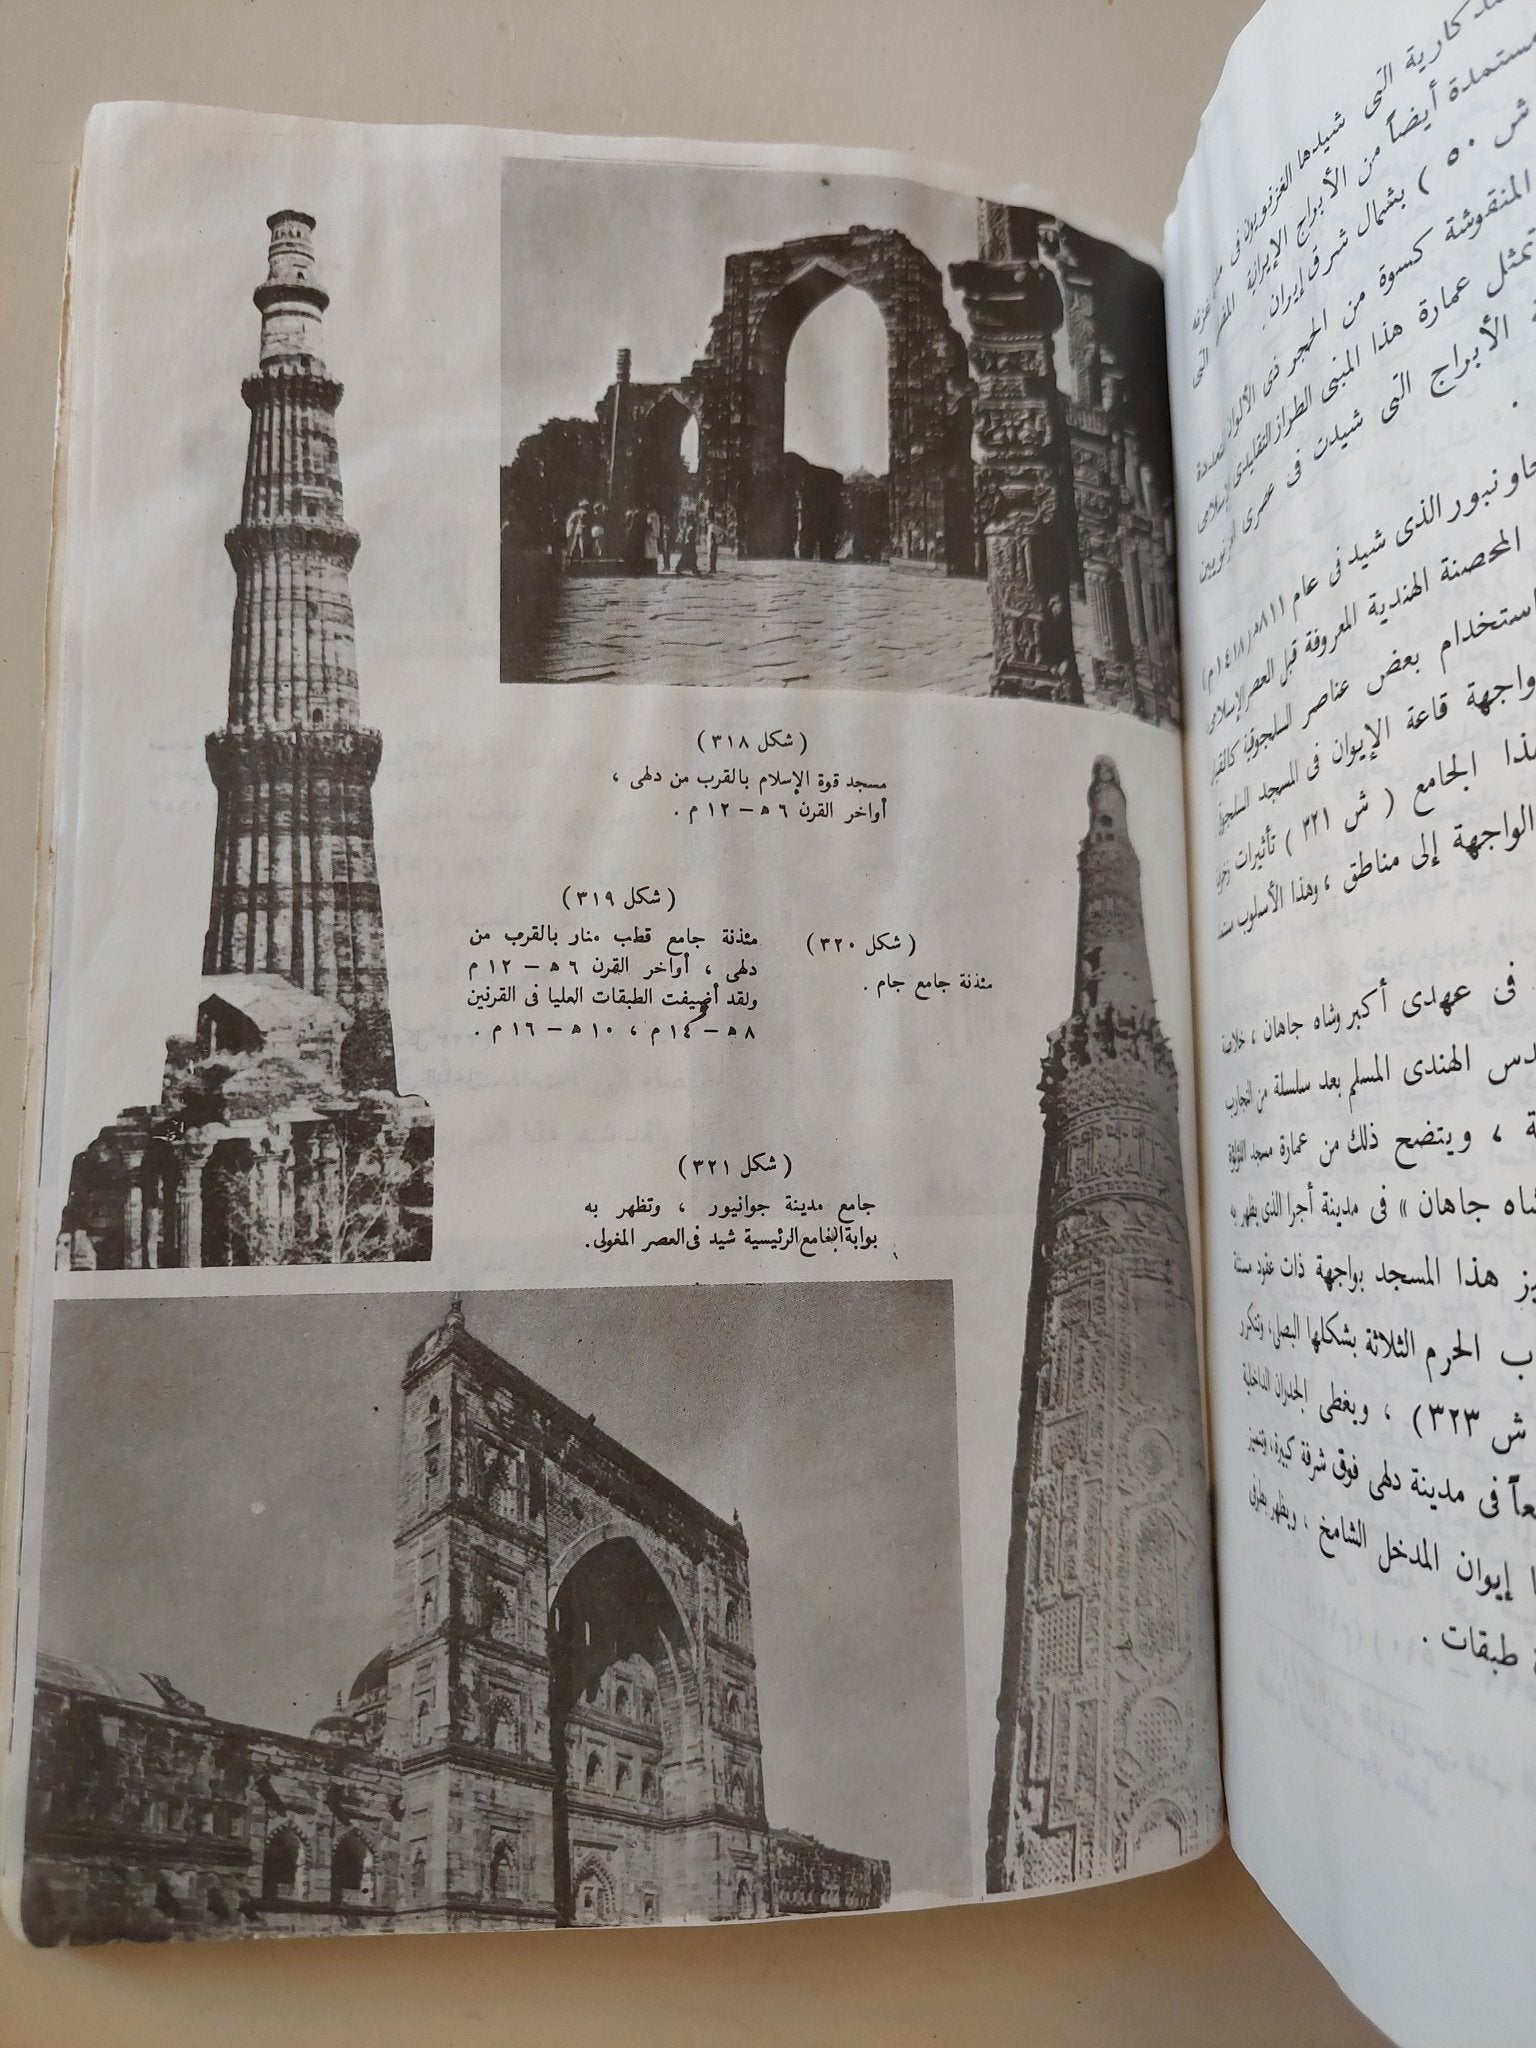 ( شكل ٣١٨ )
مسجد قوة الإسلام بالقرب من دلهى ،
أواخر القرن ٦ ه‍ – ١٢ م .
( شكل ٣١٩ )
مئذنة جامع قطب منار بالقرب من
دلهى ، أواخر القرن ٦ ه‍ – ١٢ م
ولقد أضيفت الطبقات العليا فى القرنين
٨ ه‍ – ١٤ م ، ١٠ ه‍ – ١٦ م .
( شكل ٣٢٠ )
مئذنة جامع جام .
( شكل ٣٢١ )
جامع مدينة جوانپور ، وتظهر به
بوابة الجامع الرئيسية شيد فى العصر المغولى .
كارية التى شيدها الغزنويون فى
مستمدة أيضاً من الأبراج الإيرانية التى
ش ٥٠ ) بشمال شرق إيران .
المنقوشة كسوة من الحجر فى الألوان المتعددة
تمثل عمارة هذا المبنى الطراز التقليدى الإسلامى
الأبراج التى شيدت فى عصرى الغزنويين
.
ونبور الذى شيد فى عام ٨١١ه‍ (١٤١٨م)
المحصنة الهندية المعروفة قبل العصر الإسلامى
استخدام بعض عناصر السلجوقية
واجهة قاعة الإيوان فى المسجد
هذا الجامع ( ش ٣٢١ ) تأثيرات
الواجهة إلى مناطق ، وهذا الأسلوب
فى عهدى أكبر وشاه جاهان ، خلاصة
الهندى المسلم بعد سلسلة من التجارب
، ويتضح ذلك من عمارة مسجد اللؤلؤة
شاه جاهان » فى مدينة أجرا الذى يظهر به
هذا المسجد بواجهة ذات عقود مسننة
الحرم الثلاثة بشكلها البصلى ، وتتكرر
ش ٣٢٣) ، ويغطى الجدران الداخلية
فى مدينة دهلى فوق شرفة كبيرة ، وتتميز
إيوان المدخل الشامخ ، ويظهر بطرفى
طبقات .